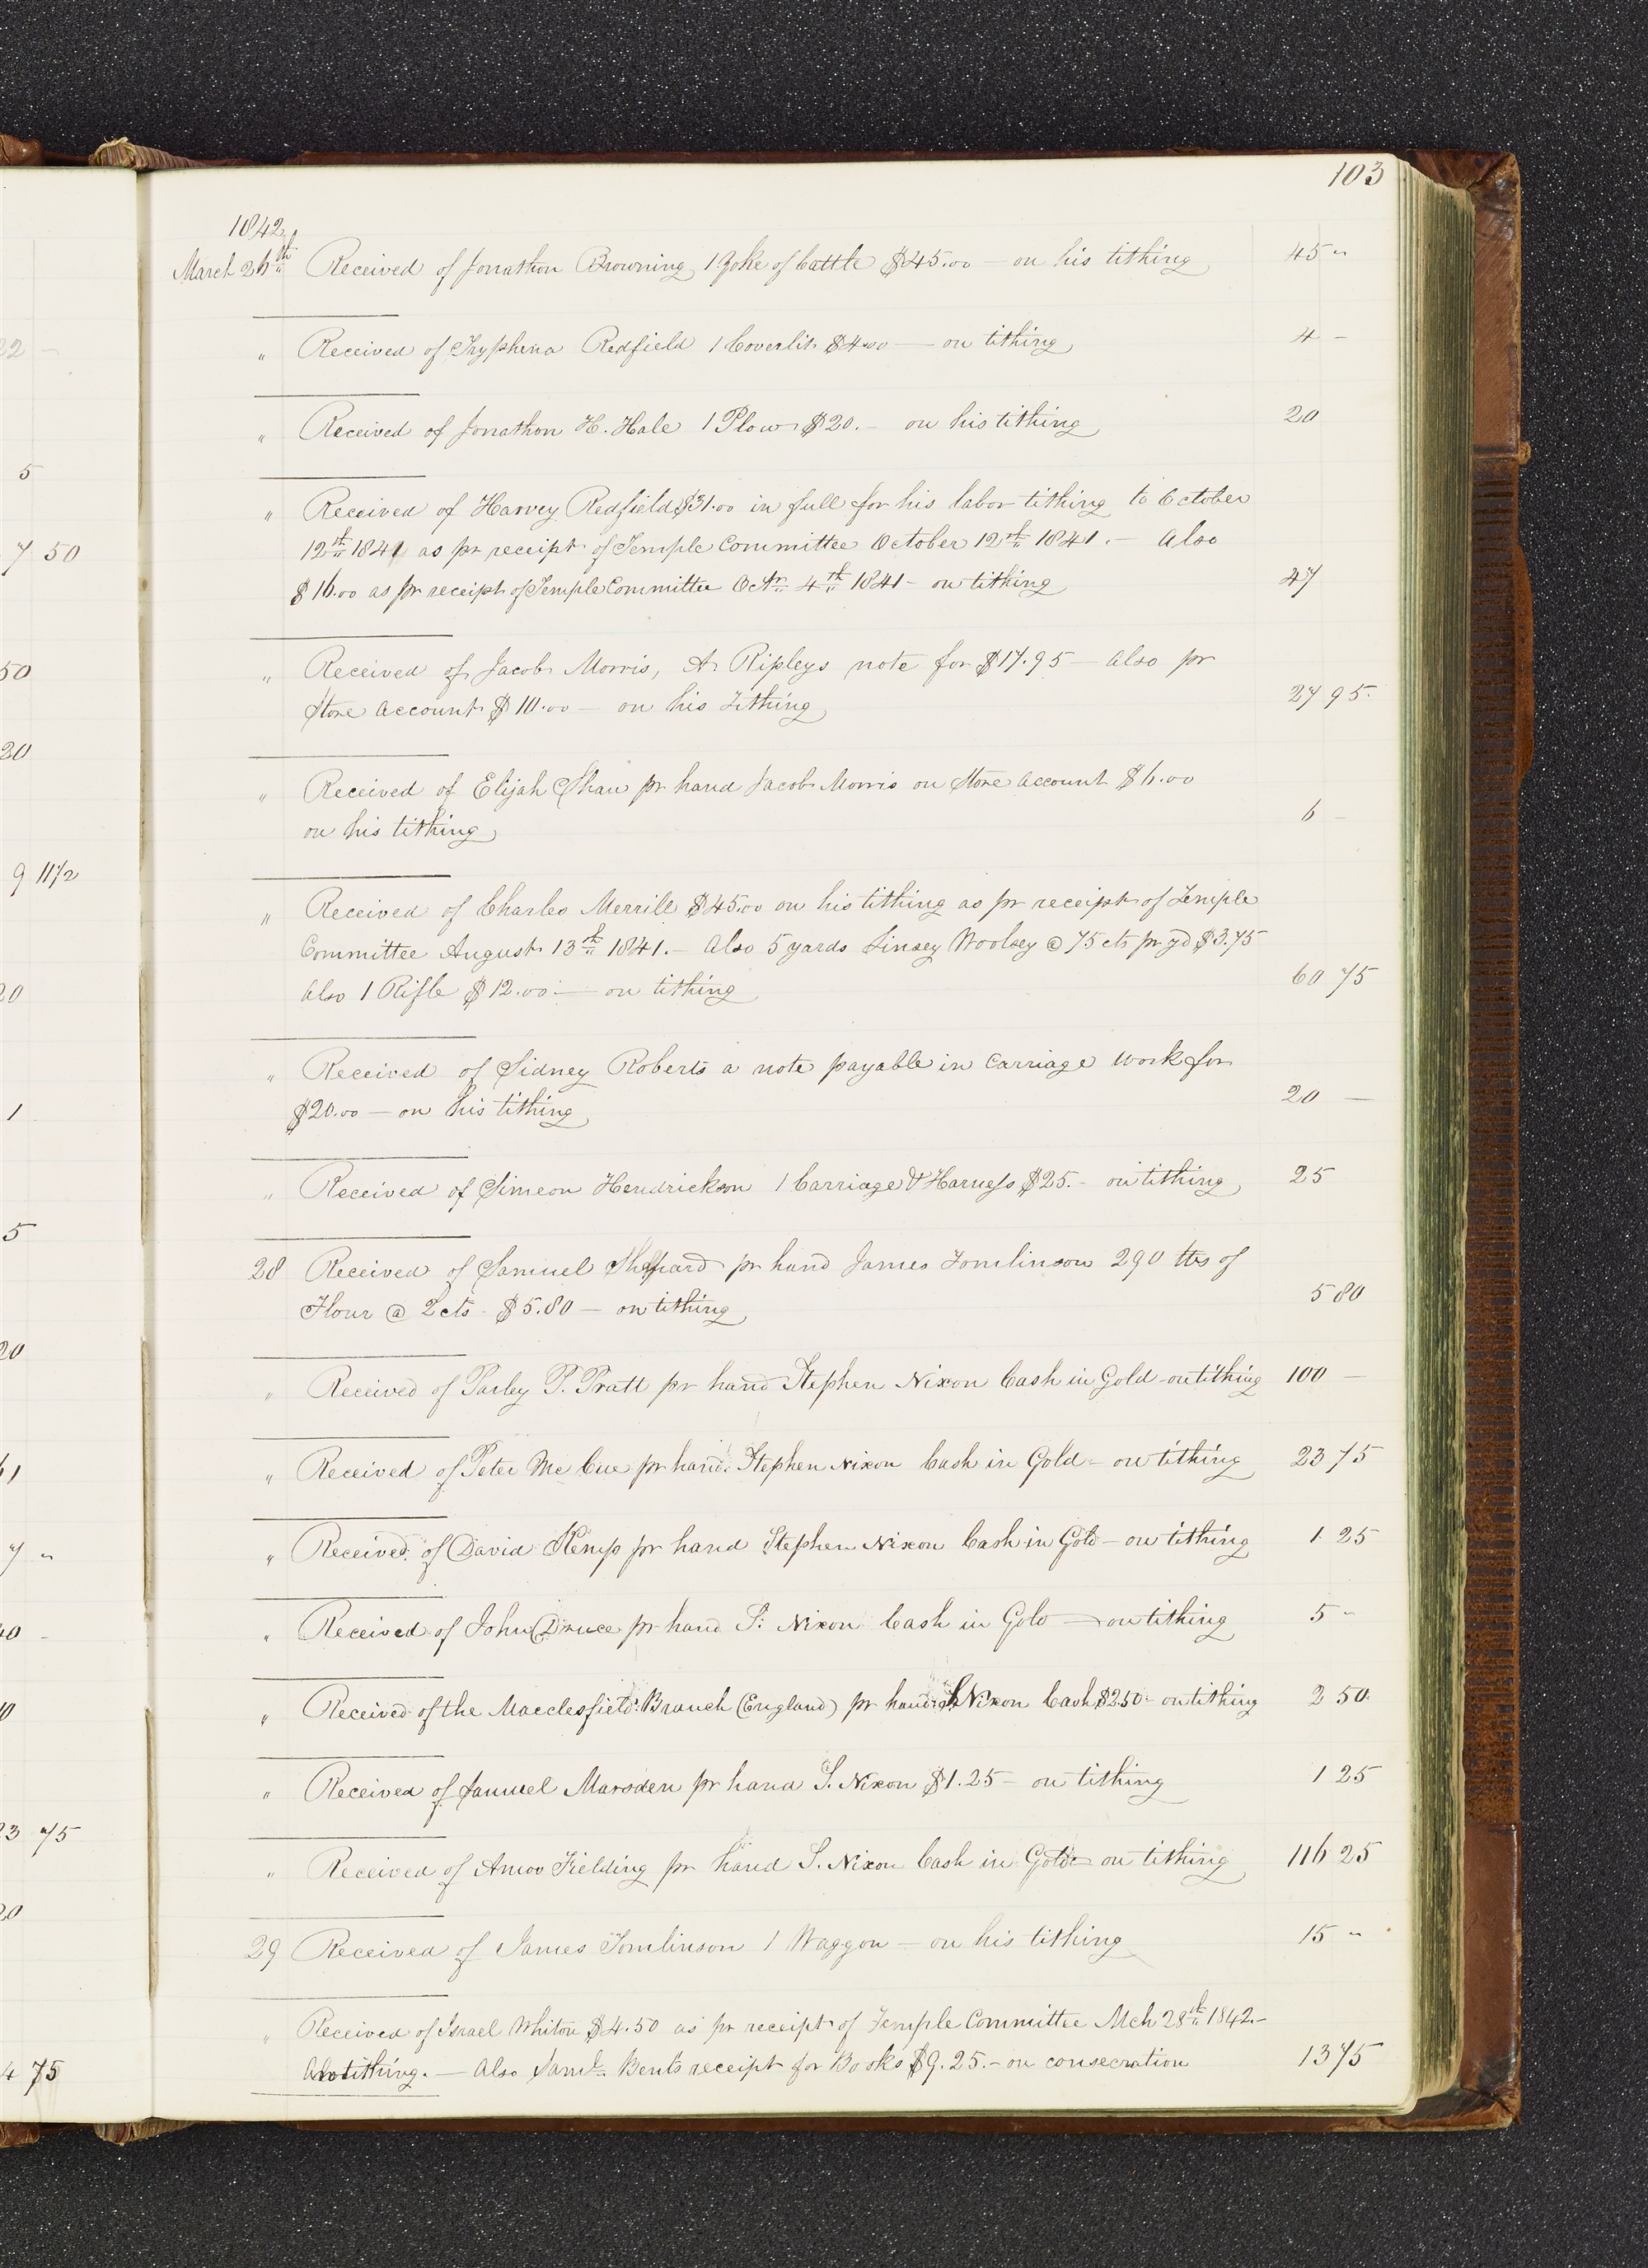 103
1842
March 26th Received of Jonathon Browning 1 Yoke of Cattle $45.00 — on his tithing 45 "
" Received of Tryphena Redfield 1 Coverlit $4.00 — on tithing 4 –
" Received of Jonathon H. Hale 1 Plow $20. – on his tithing 20
" Received of Harvey Redfield $31.00 in full for his labor tithing to October
12th 1841 as pr receipt of Temple Committee October 12th 1841. – Also
$16.00 as pr receipt of Temple Committee Octr 4th 1841 – on tithing 47
" Received of Jacob Morris, A. Ripleys note for $17.95 — Also pr
Store account $10.00 — on his Tithing 27 95
" Received of Elijah Shaw pr hand Jacob Morris on Store account $6.00
on his tithing 6 –
" Received of Charles Merrill $45.00 on his tithing as pr receipt of Temple
Committee August 13th 1841. – Also 5 yards Linsey Woolsey @ 75 cts pr yd $3.75
Also 1 Rifle $12.00 — on tithing 60 75
" Received of Sidney Roberts a note payable in Carriage work for
$20.00 — on his tithing 20 —
" Received of Simeon Hendrickson 1 Carriage & Harness $25. – on tithing 25
28 Received of Samuel Shepard pr hand James Tomlinson 290 lbs of
Flour @ 2 cts $5.80 — on tithing 5 80
" Received of Parley P. Pratt pr hand Stephen Nixon Cash in Gold – on tithing 100 —
" Received of Peter Mc Cue pr hand Stephen Nixon Cash in Gold – on tithing 23 75
" Received of David Kemp pr hand Stephen Nixon Cash in Gold – on tithing 1 25
" Received of John Druce pr hand S. Nixon Cash in Gold — on tithing 5 "
" Received of the Macclesfield Branch (England) pr hand S. Nixon Cash $2.50 – on tithing 2 50
" Received of Samuel Marsden pr hand S. Nixon $1.25 – on tithing 1 25
" Received of Amos Fielding pr hand S. Nixon Cash in Gold – on tithing 116 25
29 Received of James Tomlinson 1 Waggon – on his tithing 15 "
" Received of Israel Whiton $4.50 as pr receipt of Temple Committee Mch 28th 1842. –
tithing. — Also Saml. Bents receipt for Books $9.25. – on consecration 13 75
5
7 50
50
20
9 11 1/2
20
1
5
20
61
7 "
40 -
23 75
20
4 75